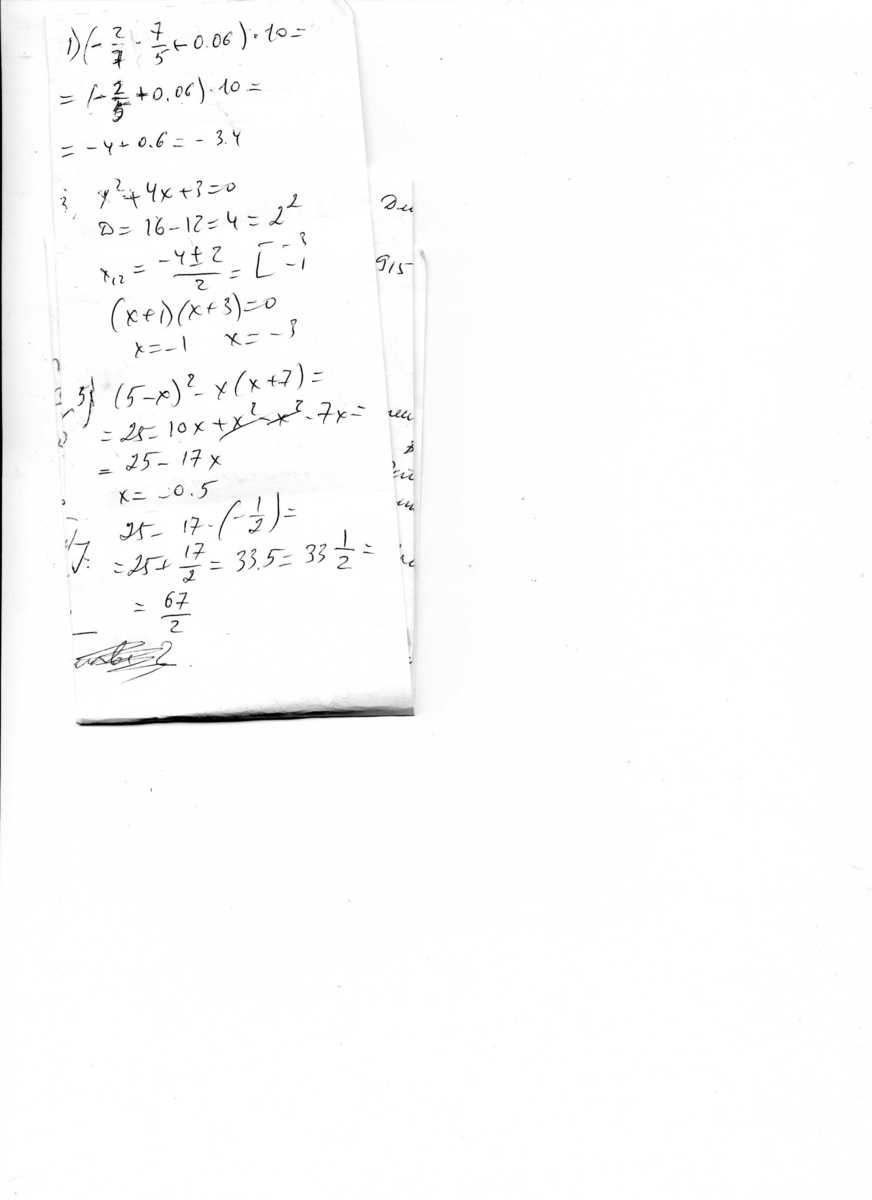 1) (- 2/7 · 7/5 + 0.06) · 10 =
= (- 2/5 + 0.06) · 10 =
= -4 + 0.6 = - 3.4
3, x² + 4x + 3 = 0
Ди
D = 16 - 12 = 4 = 2²
x₁,₂ = (-4 ± 2)/2 = [ -3 -1
915
(x+1)(x+3) = 0
x = -1 x = -3
5) (5-x)² - x(x+7) =
= 25 - 10x + x² - x² - 7x =
= 25 - 17x
x = -0.5
25 - 17 · (- 1/2) =
= 25 + 17/2 = 33.5 = 33 1/2 =
= 67/2